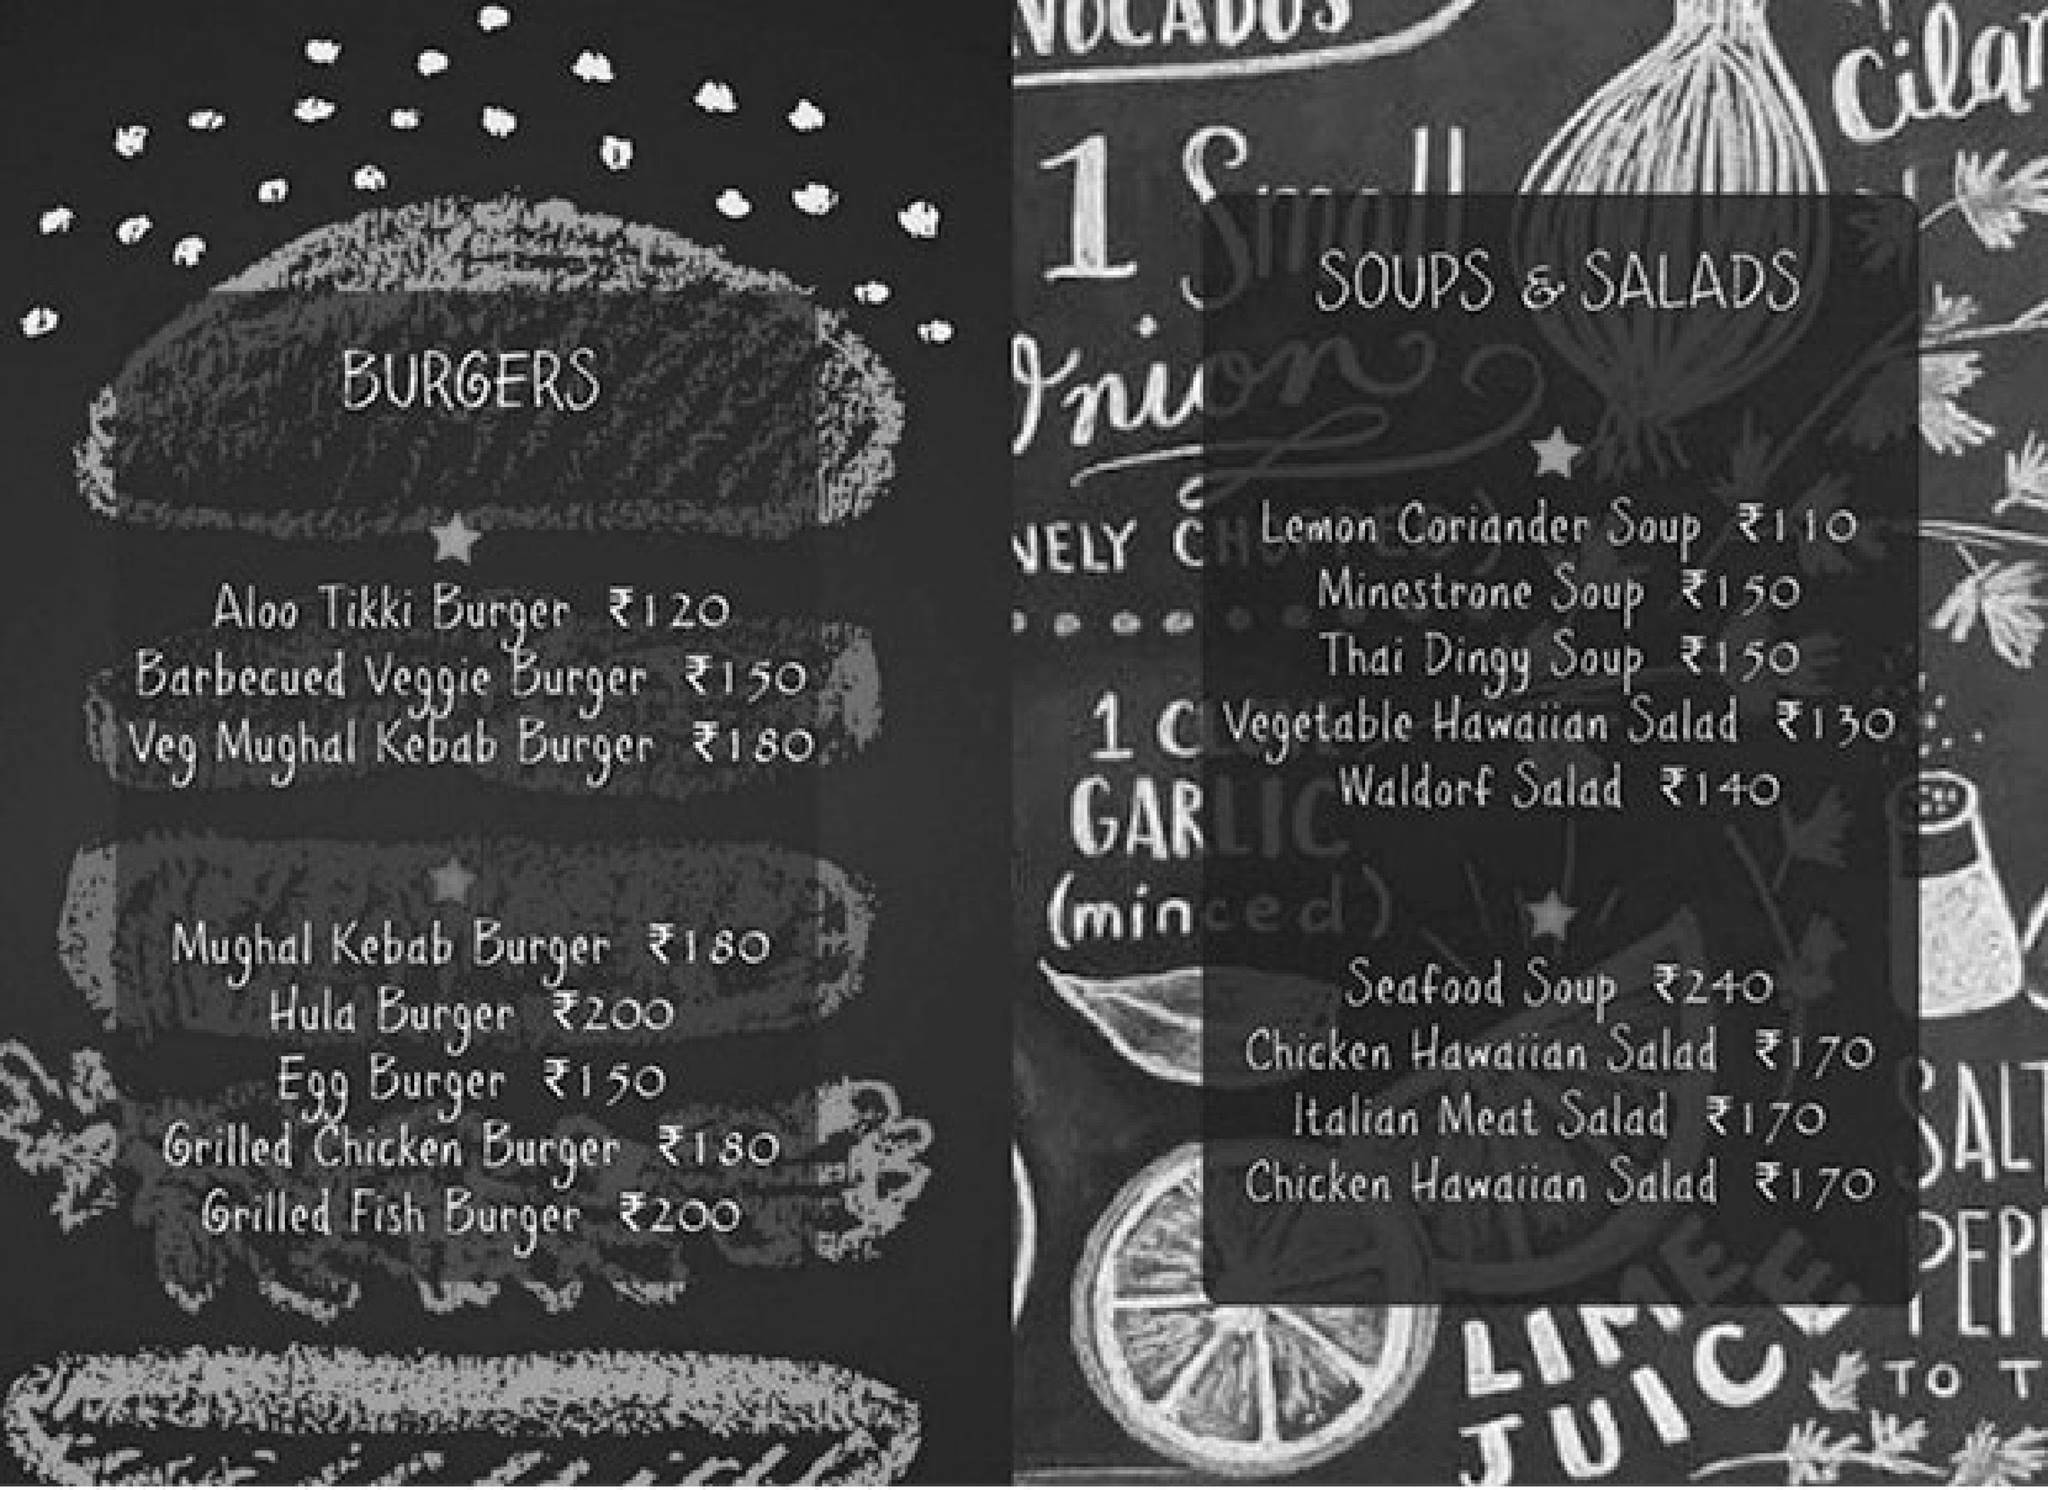 BURGERS
Aloo Tikki Burger ₹120
Barbecued Veggie Burger ₹150
Veg Mughal Kebab Burger ₹180
Mughal Kebab Burger ₹180
Hula Burger ₹200
Egg Burger ₹150
Grilled Chicken Burger ₹180
Grilled Fish Burger ₹200
1 Small
Onion
SOUPS & SALADS
Lemon Coriander Soup ₹110
Minestrone Soup ₹150
Thai Dingy Soup ₹150
Vegetable Hawaiian Salad ₹130
Waldorf Salad ₹140
GARLIC
(minced)
Seafood Soup ₹240
Chicken Hawaiian Salad ₹170
Italian Meat Salad ₹170
Chicken Hawaiian Salad ₹170
SALT
LIME
JUICE
TO